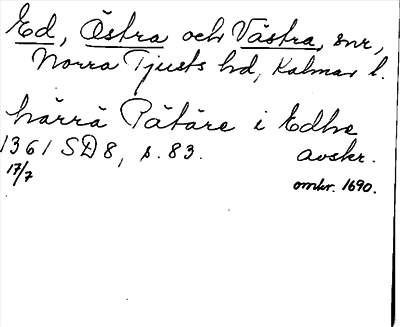 Ed, Östra och Västra, snr,
Norra Tjusts hd, Kalmar l.
härrä Pätäre i Edhe
1361 SD 8, s. 83. avskr.
17/7 omkr. 1690.